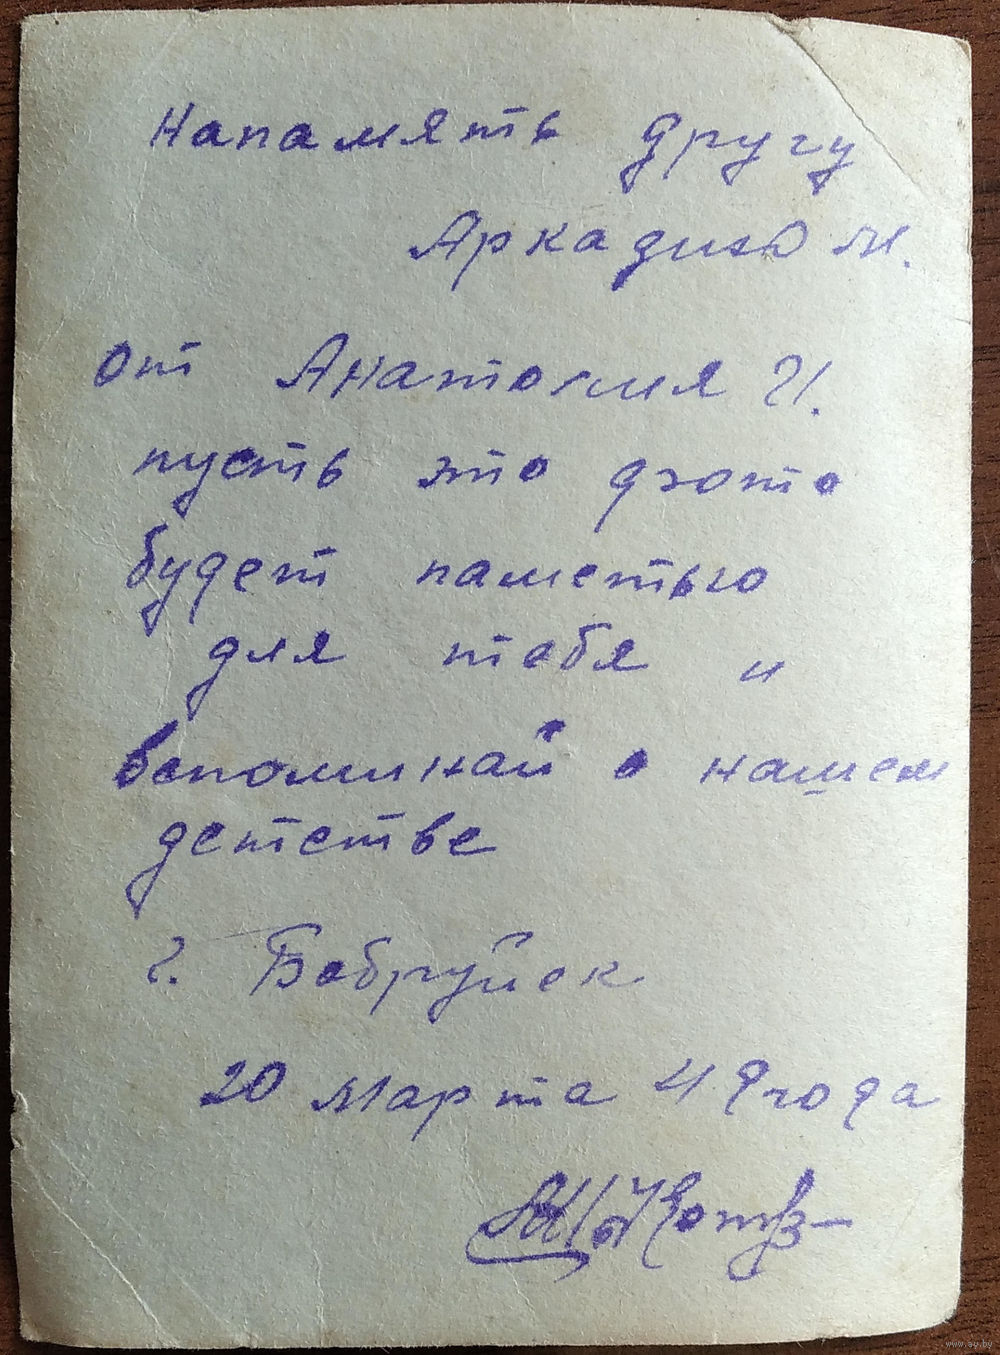 Напамять другу
Аркадию М.
от Анатолия И.
пусть это фото
будет паметью
для тебя и
вспоминай о нашем
детстве
г. Бобруйск
20 марта 49 года
www.ay.by